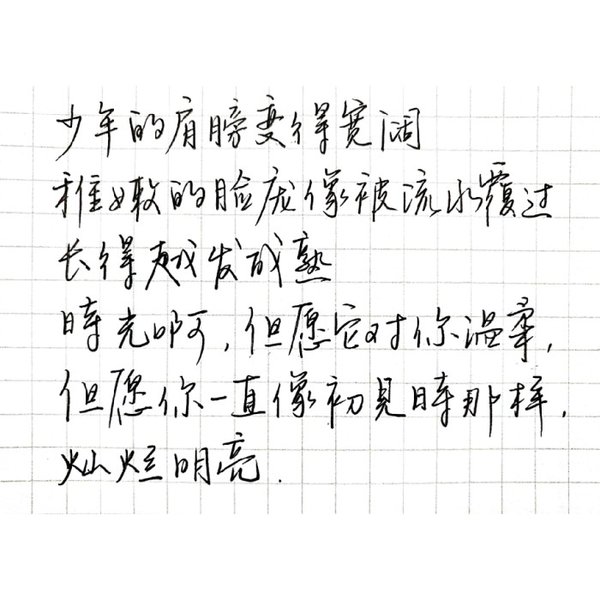 少年的肩膀变得宽阔
稚嫩的脸庞像被流水覆过
长得越发成熟
時光啊,但愿它对你温柔,
但愿你一直像初見時那样,
灿烂明亮.